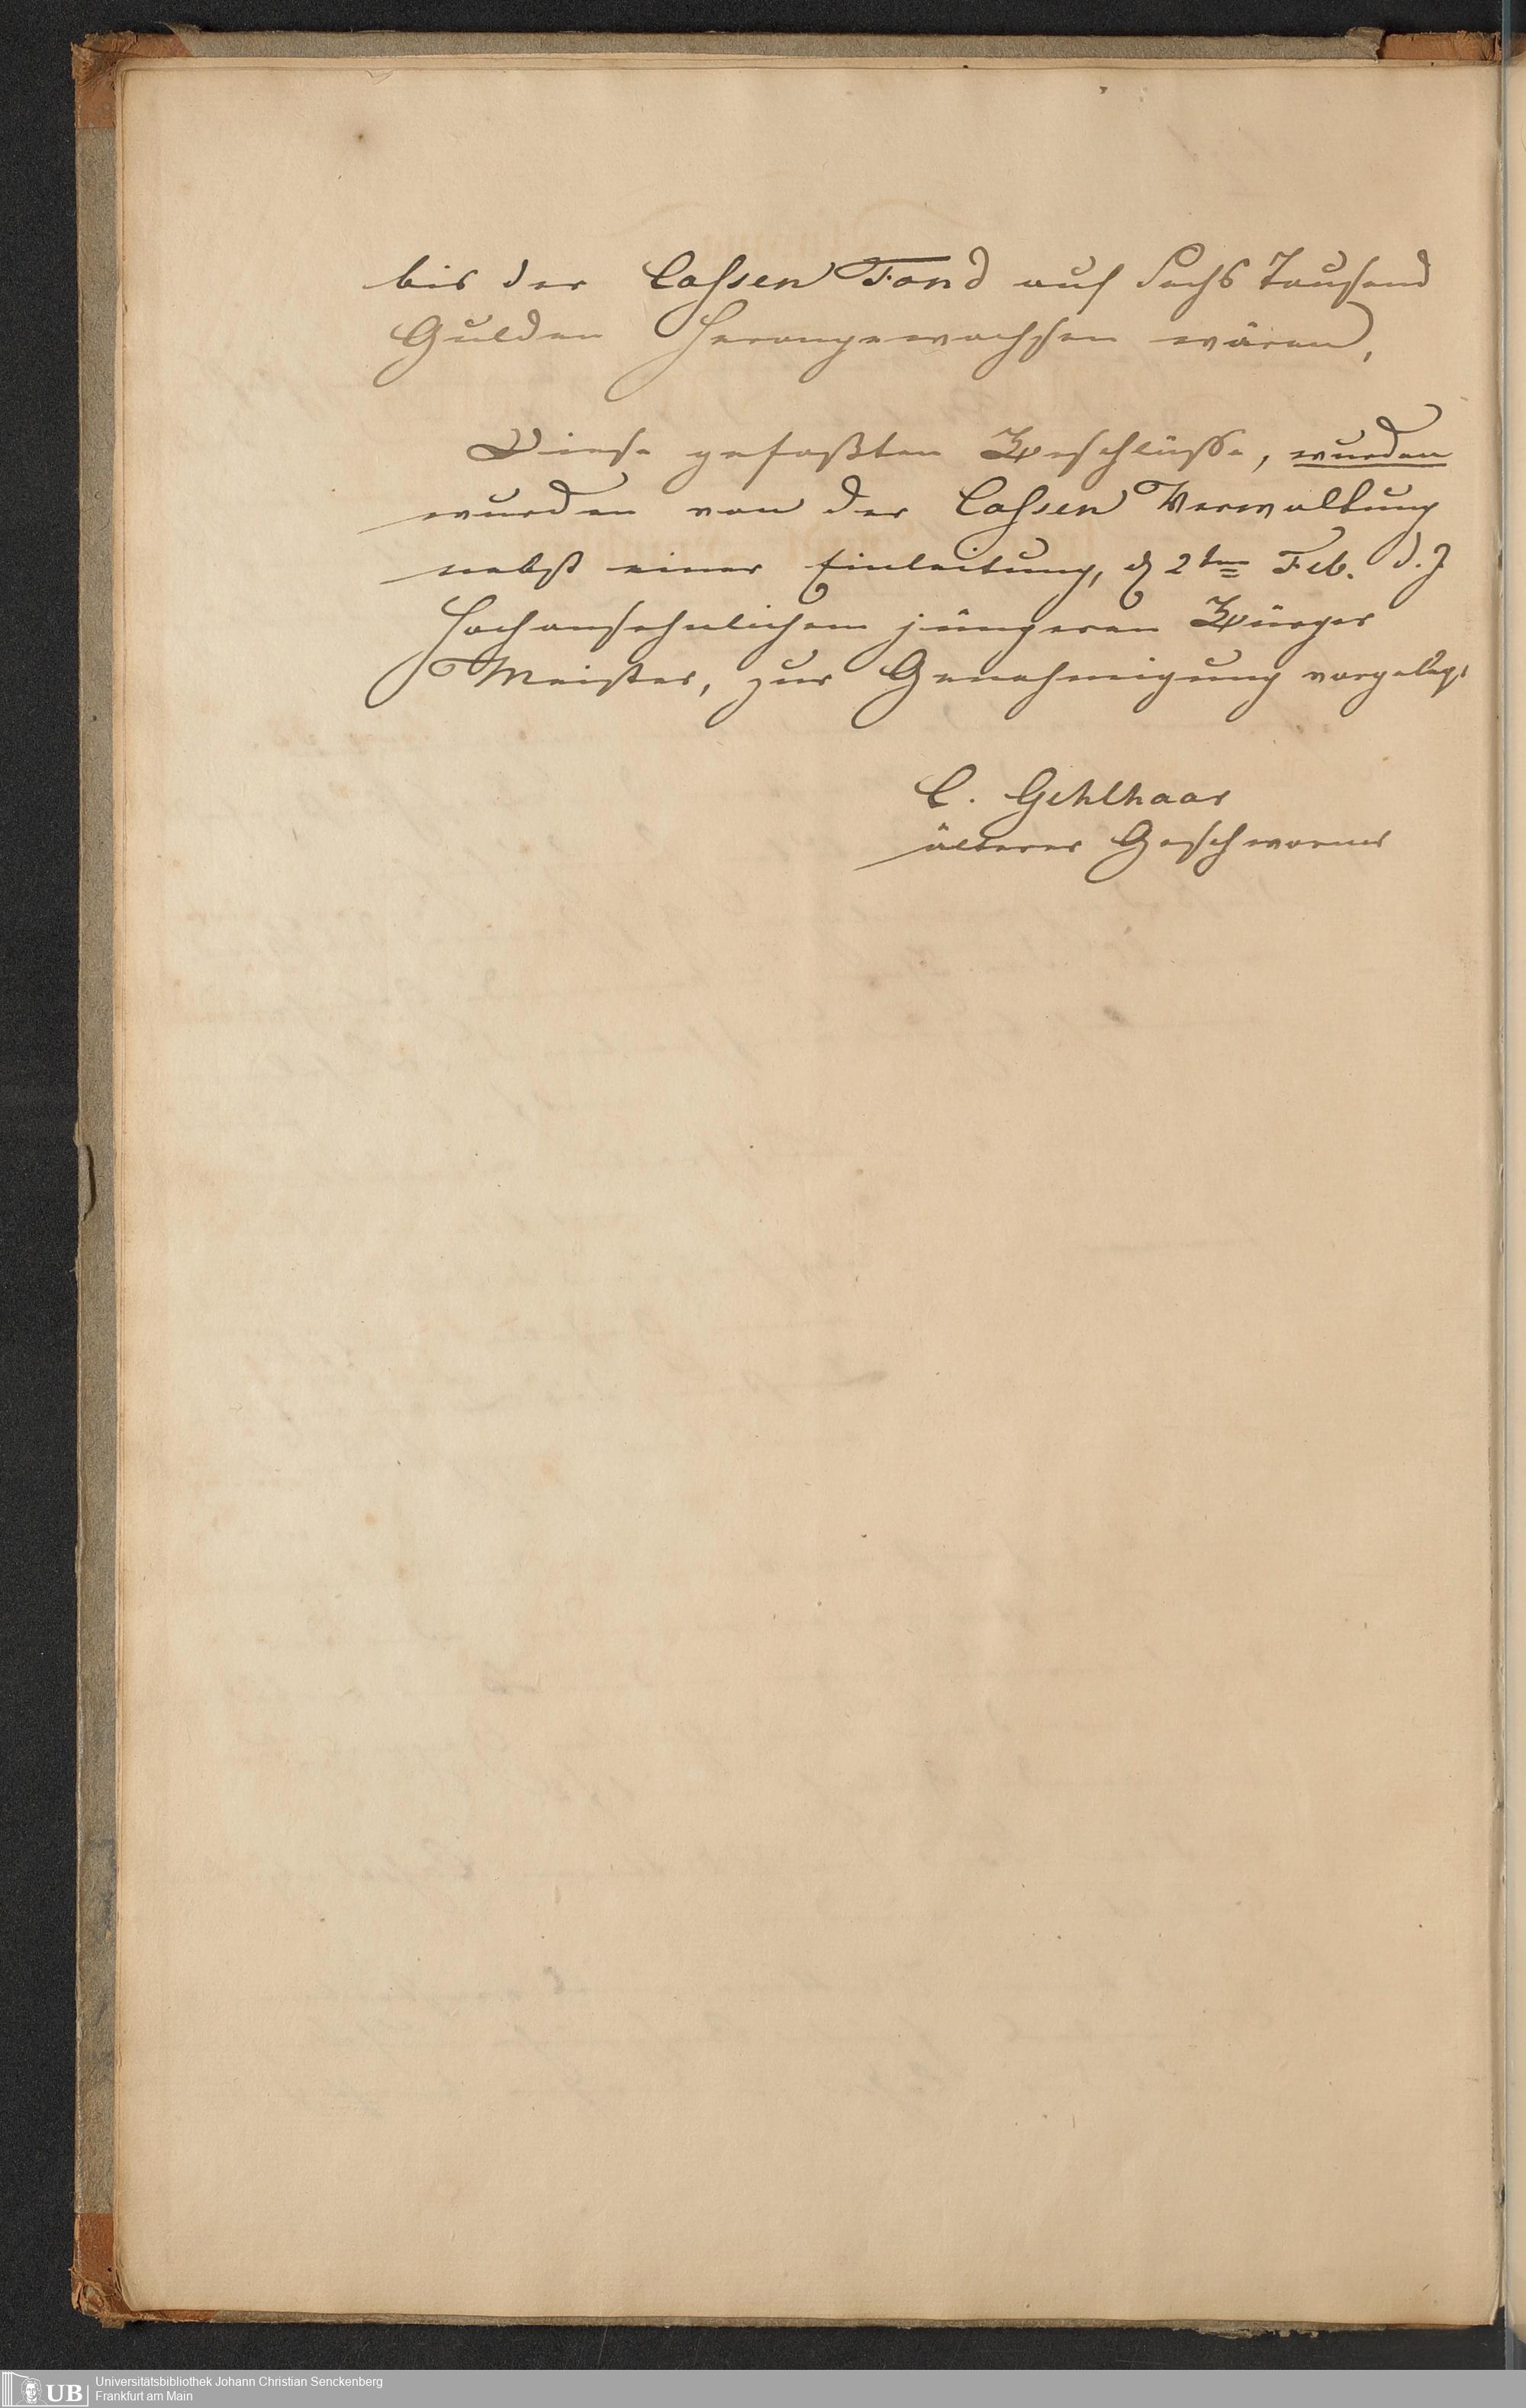 bis der Cassen Fond auf Sechs Tausend
Gulden Herangewachsen wären,
Diese gefaßten Beschlüsse, wurden
wurden von der Cassen Verwaltung
nebst einer Einleitung, d 2ten Feb. d. J
Hochansehnlichem jüngeren Bürger
Meister, zur Genehmigung vorgelegt
C. Gehlhaar
älterer Geschworner
UB Universitätsbibliothek Johann Christian Senckenberg
Frankfurt am Main